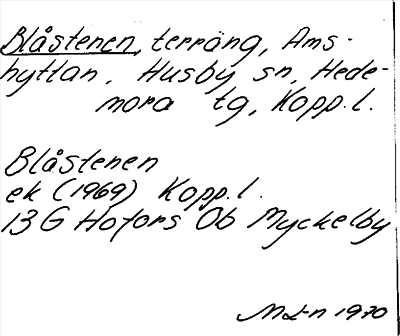 Blåstenen, terräng, Ams-
hyttan, Husby sn, Hede-
mora tg, Kopp. l.
Blåstenen
ek (1969) Kopp. l.
13 G Hofors Ob Myckelby
1970